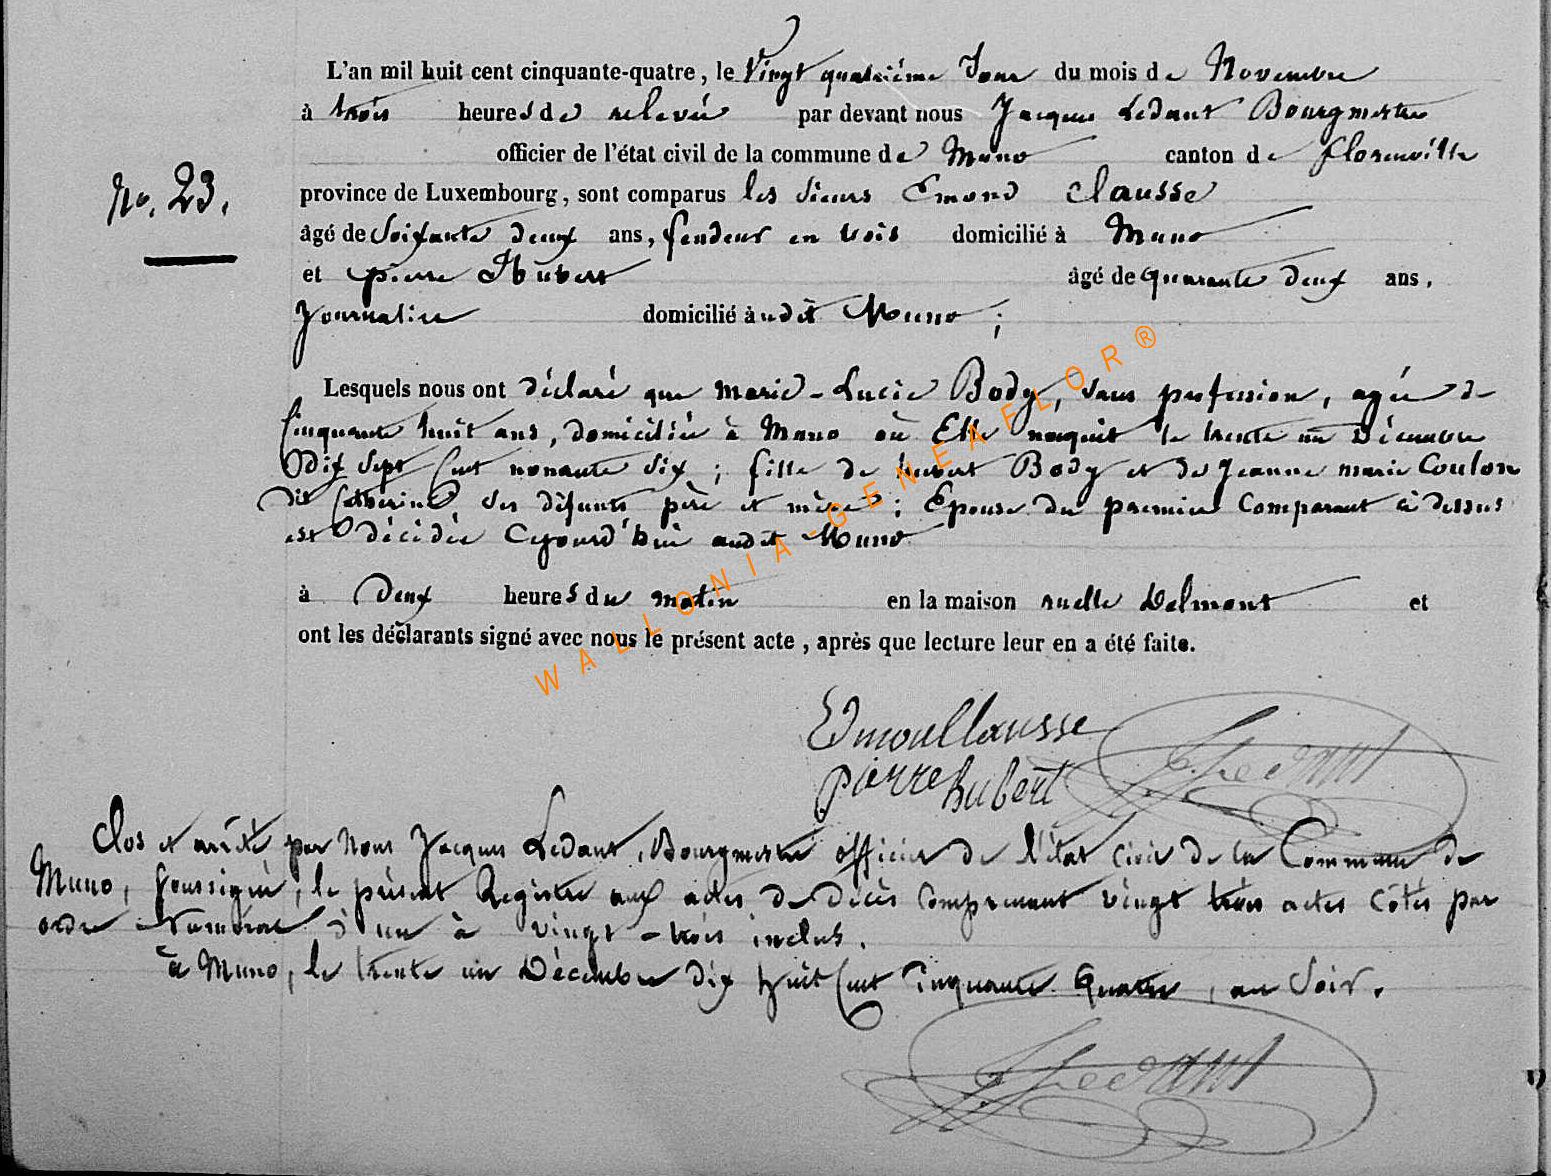 L'an mil huit cent cinquante-quatre, le Vingt quatrième Jour du mois de Novembre
à trois heures de relevée par devant nous Jacques Ledant Bourgmestre
officier de l'état civil de la commune de Muno canton de florenville
No. 23.
province de Luxembourg, sont comparus les sieurs Emond Clausse
âgé de Soixante deux ans, fendeur en bois domicilié à Muno
et pierre Hubert âgé de quarante deux ans,
Journalier domicilié audit Muno ;
Lesquels nous ont déclaré que marie-Lucie Body, sans profession, agée de
Cinquante huit ans, domiciliée à Muno où Elle naquit le trente un Décembre
Dix Sept Cent nonante Six ; fille de hubert Body et de Jeanne marie Coulon
dit Catherine, ses défunts père et mère ; Epouse du premier Comparant ci dessus
est décédée Cejourd'hui audit Muno
à Deux heures du matin en la maison ruelle Delmont et
ont les déclarants signé avec nous le présent acte, après que lecture leur en a été faite.
WALLONIA-GENEAFLOR®
EdmonClausse
pierre hubert
JLedant
Clos et arrêté par Nous Jacques Ledant, Bourgmestre officier de l'état civil de la Commune de
Muno, Soussigné, le présent Registre aux actes de décès Comprenant vingt trois actes côtés par
ordre Numéral d'un à vingt-trois inclus.
à Muno, le trente un Décembre dix huit Cent Cinquante Quatre, au Soir.
JLedant